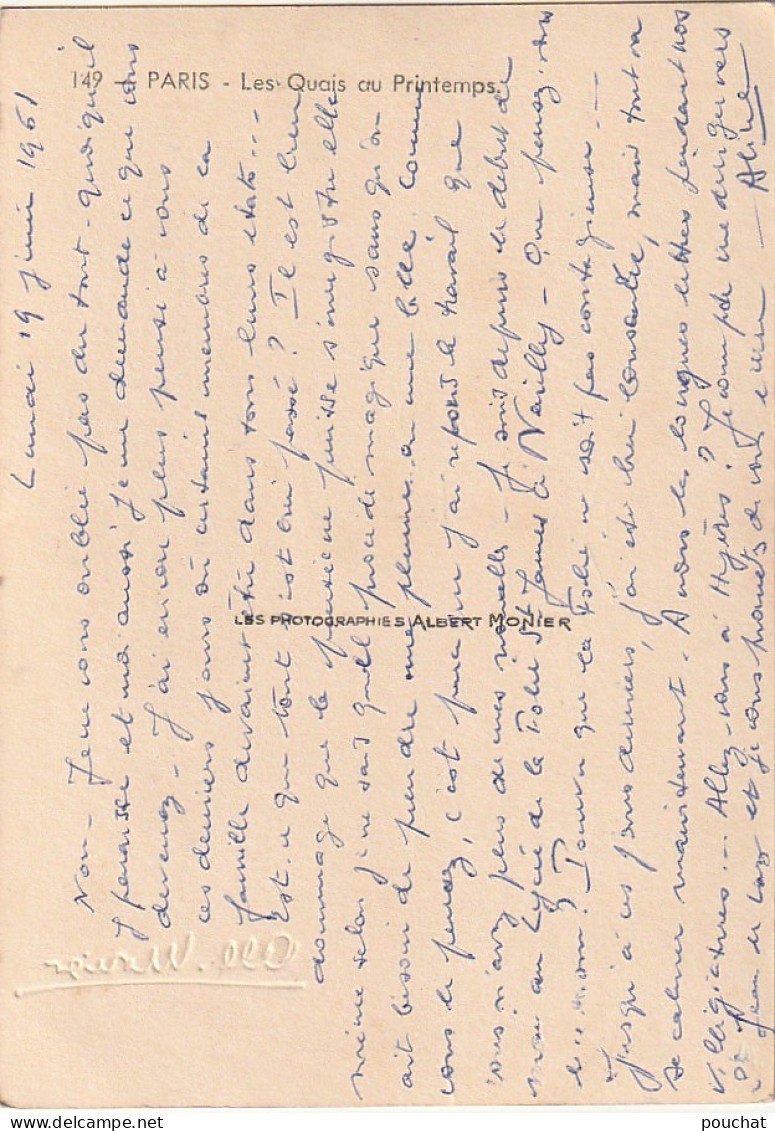 149 - PARIS - Les Quais au Printemps.
LES PHOTOGRAPHIES ALBERT MONIER
Alb. Monier
Lundi 19 Juin 1961
Non - Je ne vous oublie pas du tout - quoiqu'il
y paraisse et moi aussi je me demande ce que vous
devenez - J'ai encore plus pensé à vous
ces derniers jours où certains membres de la
famille devaient être dans tous leurs états...
Est-ce que tout s'est bien passé? Il est bien
dommage que la pensée ne puisse s'enregistrer elle
même selon je ne sais quel procédé magique sans qu'on
ait besoin de prendre une plume ou une bille. Comme
vous le pensez, c'est parce que j'ai repris le travail que
vous n'avez plus de mes nouvelles - Je suis depuis le début de
mai au Lycée de la Folie St James à Neuilly - Que pensez-vous
du nom? Pourvu que la Folie ne soit pas contagieuse. -
Jusqu'à ces jours derniers, j'ai été bien , mais tout va
se calmer maintenant. A nous les longues lettres pendant nos
villégiatures. - Allez-vous à Hyères? Je compte me diriger vers
St Jean de Luz et je vous promets de vous écrire - Aline
pouchat